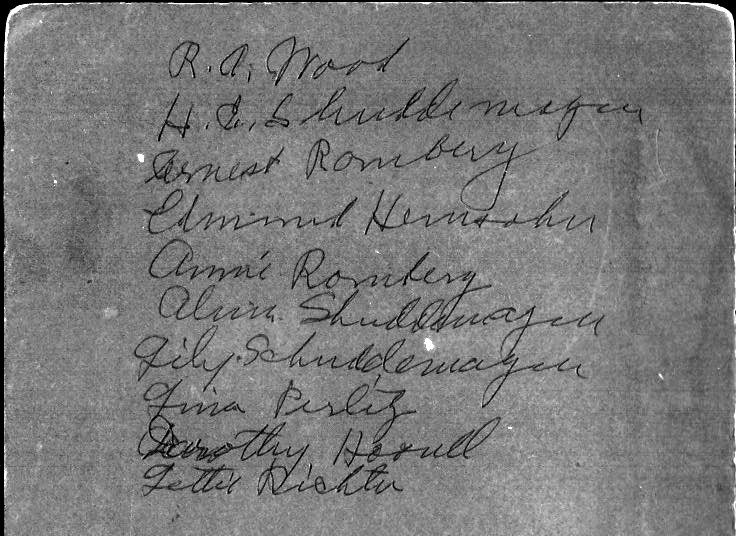 R. A. Wood
H. C. Shuddemagen
Ernest Romberg
Edmund
Annie Romberg
Alvin Shuddemagen
Lily Schuddemagen
Lina Perlitz
Dorothy
Lettie Richter